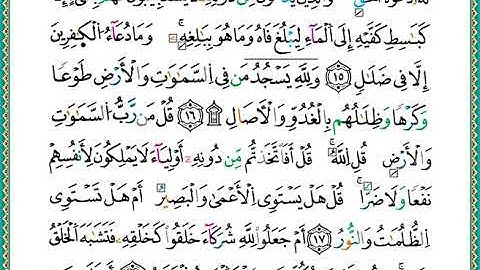 كَبَٰسِطِ كَفَّيْهِ إِلَى ٱلْمَآءِ لِيَبْلُغَ فَاهُ وَمَا هُوَ بِبَٰلِغِهِۦۚ وَمَا دُعَآءُ ٱلْكَٰفِرِينَ
إِلَّا فِى ضَلَٰلٍ ١٥ وَلِلَّهِ يَسْجُدُ مَن فِى ٱلسَّمَٰوَٰتِ وَٱلْأَرْضِ طَوْعًا
وَكَرْهًا وَظِلَٰلُهُم بِٱلْغُدُوِّ وَٱلْأَصَالِ ١٦ قُلْ مَن رَّبُّ ٱلسَّمَٰوَٰتِ
وَٱلْأَرْضِ قُلِ ٱللَّهُۚ قُلْ أَفَٱتَّخَذتُّم مِّن دُونِهِۦٓ أَوْلِيَآءَ لَا يَمْلِكُونَ لِأَنفُسِهِمْ
نَفْعًا وَلَا ضَرًّاۚ قُلْ هَلْ يَسْتَوِى ٱلْأَعْمَىٰ وَٱلْبَصِيرُ أَمْ هَلْ تَسْتَوِى
ٱلظُّلُمَٰتُ وَٱلنُّورُ ١٧ أَمْ جَعَلُوا۟ لِلَّهِ شُرَكَآءَ خَلَقُوا۟ كَخَلْقِهِۦ فَتَشَٰبَهَ ٱلْخَلْقُ